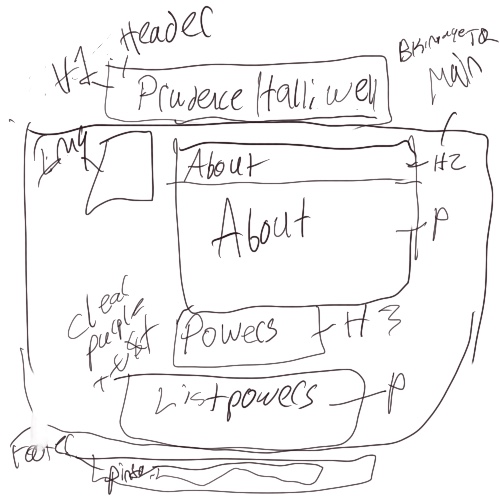 Header
H1
Prudence Halliwell
Main
Img
About
H2
About
P
clear
purple
text
Powers
H3
List powers
P
Footer